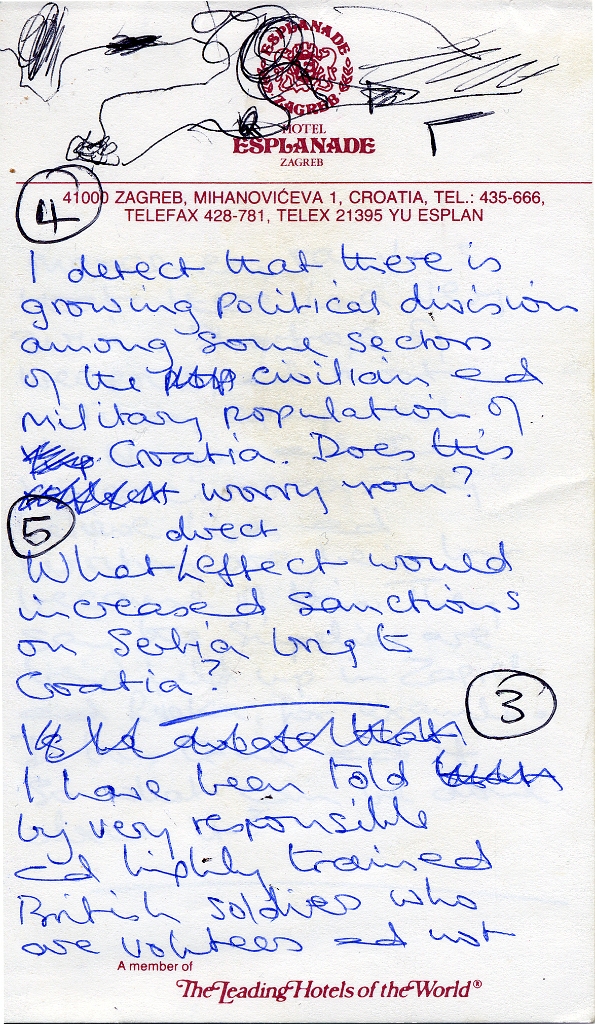 ESPLANADE
ZAGREB
HOTEL
ESPLANADE
ZAGREB
41000 ZAGREB, MIHANOVIĆEVA 1, CROATIA, TEL.: 435-666,
TELEFAX 428-781, TELEX 21395 YU ESPLAN
4
I detect that there is
growing Political division
among some sectors
of the civilian and
military population of
Croatia. Does this
worry you?
5
direct
What effect would
increased sanctions
on Serbia bring to
Croatia?
3
I have been told
by very responsible
and highly trained
British soldiers who
are volunteers and not
A member of
The Leading Hotels of the World®